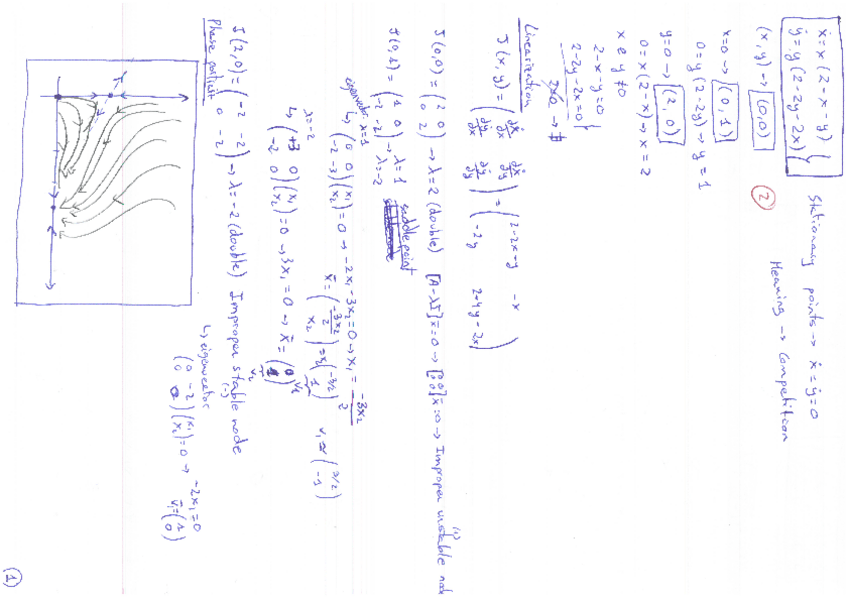 ẋ = x (2 - x - y) }
ẏ = y (2 - 2y - 2x) }
Stationary points → ẋ = ẏ = 0
Meaning → Competition
(x, y) → (0,0)
2
x=0 → (0,1)
0 = y (2-2y) → y = 1
y=0 → (2,0)
0 = x (2-x) → x = 2
x e y ≠ 0
2-x-y=0 }
2-2y-2x=0 }
→ ∄
Linearization
J(x,y) = ( ∂ẋ/∂x ∂ẋ/∂y ; ∂ẏ/∂x ∂ẏ/∂y ) = ( 2-2x-y -x ; -2y 2-4y-2x )
J(0,0) = ( 2 0 ; 0 2 ) → λ=2 (double) [A-λI]x̄=0 → [0 0 ; 0 0]x̄=0 → Improper unstable node
J(0,1) = ( 1 0 ; -2 -2 ) → λ=1 λ=-2 saddle point
eigenvector λ=1
↳ ( 0 0 ; -2 -3 )( x₁ ; x₂ ) = 0 → -2x₁-3x₂=0 → x₁ = -3x₂/2
x̄ = ( -3x₂/2 ; x₂ ) = x₂( -3/2 ; 1 ) v₁ = ( 3/2 ; -1 )
λ=-2
↳ ( +3 0 ; -2 0 )( x₁ ; x₂ ) = 0 → 3x₁ = 0 → x̄ = ( 0 ; 1 ) v₂
J(2,0) = ( -2 -2 ; 0 -2 ) → λ=-2 (double) Improper stable node
↳ eigenvector
( 0 -2 ; 0 0 )( x₁ ; x₂ ) = 0 → -2x₁=0
v̄₁ = ( 1 ; 0 )
Phase portrait
(1)